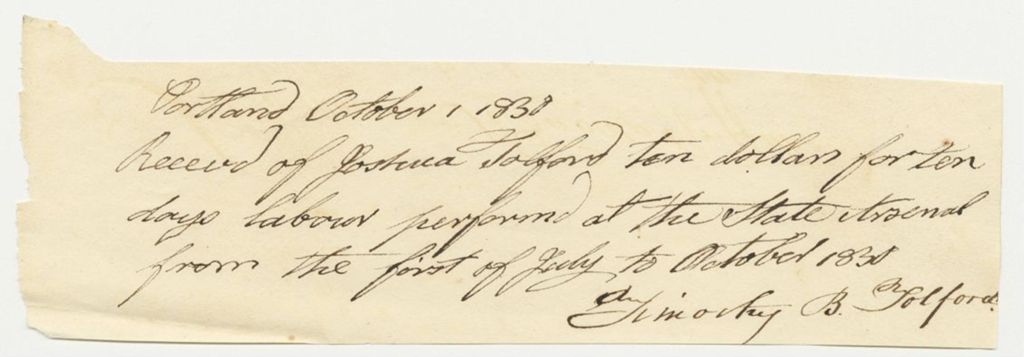 Portland October 1 1838
Receivd of Joshua Tolford ten dollars for ten
days labour performd at the State Arsenal
from the first of July to October 1838
Timothy B. Tolford